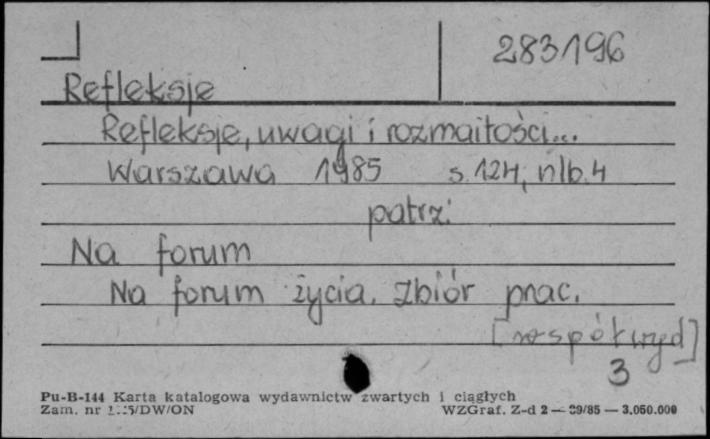 283196
Refleksje
Refleksje, uwagi i rozmaitości...
Warszawa 1985 s. 124, nlb. 4
patrz:
Na forum
Na forum życia. Zbiór prac.
[współwyd]
3
Pu-B-144 Karta katalogowa wydawnictw zwartych i ciągłych
Zam. nr /DW/ON WZGraf. Z-d 2 — 29/85 — 3.050.000